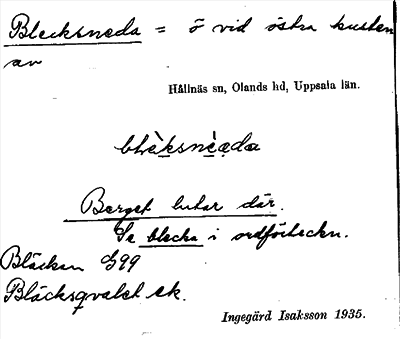 Blecksneda = ö vid östra kusten
av
Hållnäs sn, Olands hd, Uppsala län.
blèksnèda
Berget lutar där.
Se blecka i ordförteckn.
Bläckan G99
Bläcksqvalet sk.
Ingegärd Isaksson 1935.